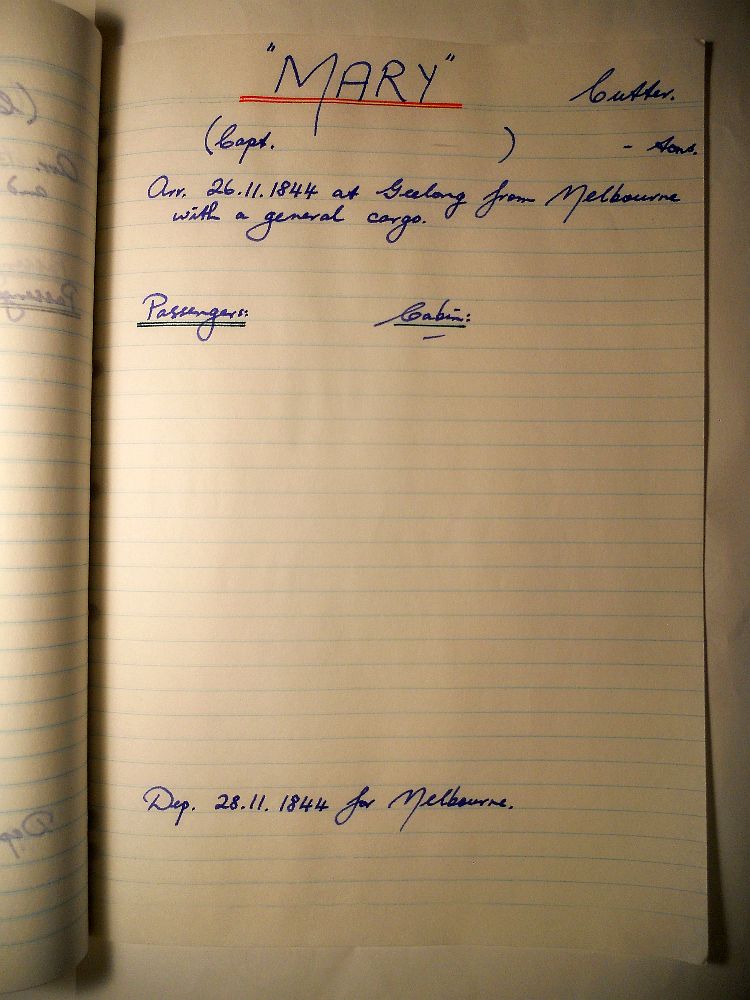 "MARY"
Cutter.
(Capt. )
- tons.
Arr. 26.11.1844 at Geelong from Melbourne
with a general cargo.
Passengers:
Cabin:
-
Dep. 28.11.1844 for Melbourne.